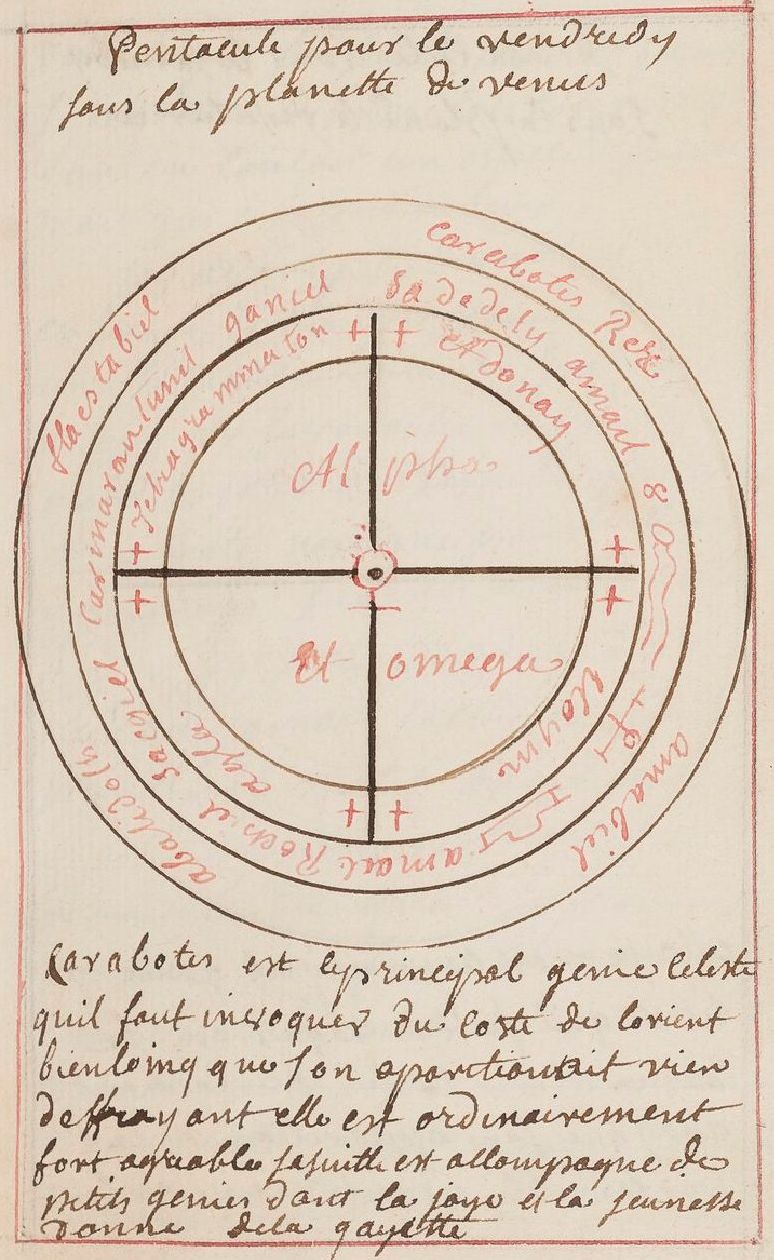 Pentacule pour le vendredy
sous la planette de venus
carabotes Rex
amabiel
abalidoth
flaestabiel
Sadedely amael
amael Rochiel Sacgiel
ganiel
+ Adonay +
+ eloym +
+ agla +
+ Tetragrammaton +
Al pha
Et omega
Carabotes est le principal genie Celeste
quil faut invoquer du Coste de lorient
bienloing que son aparition ait rien
deffrayant elle est ordinairement
fort agreable sa suitte est accompagne de
petits genies dont la joye et la jeunesse
donne dela gayette